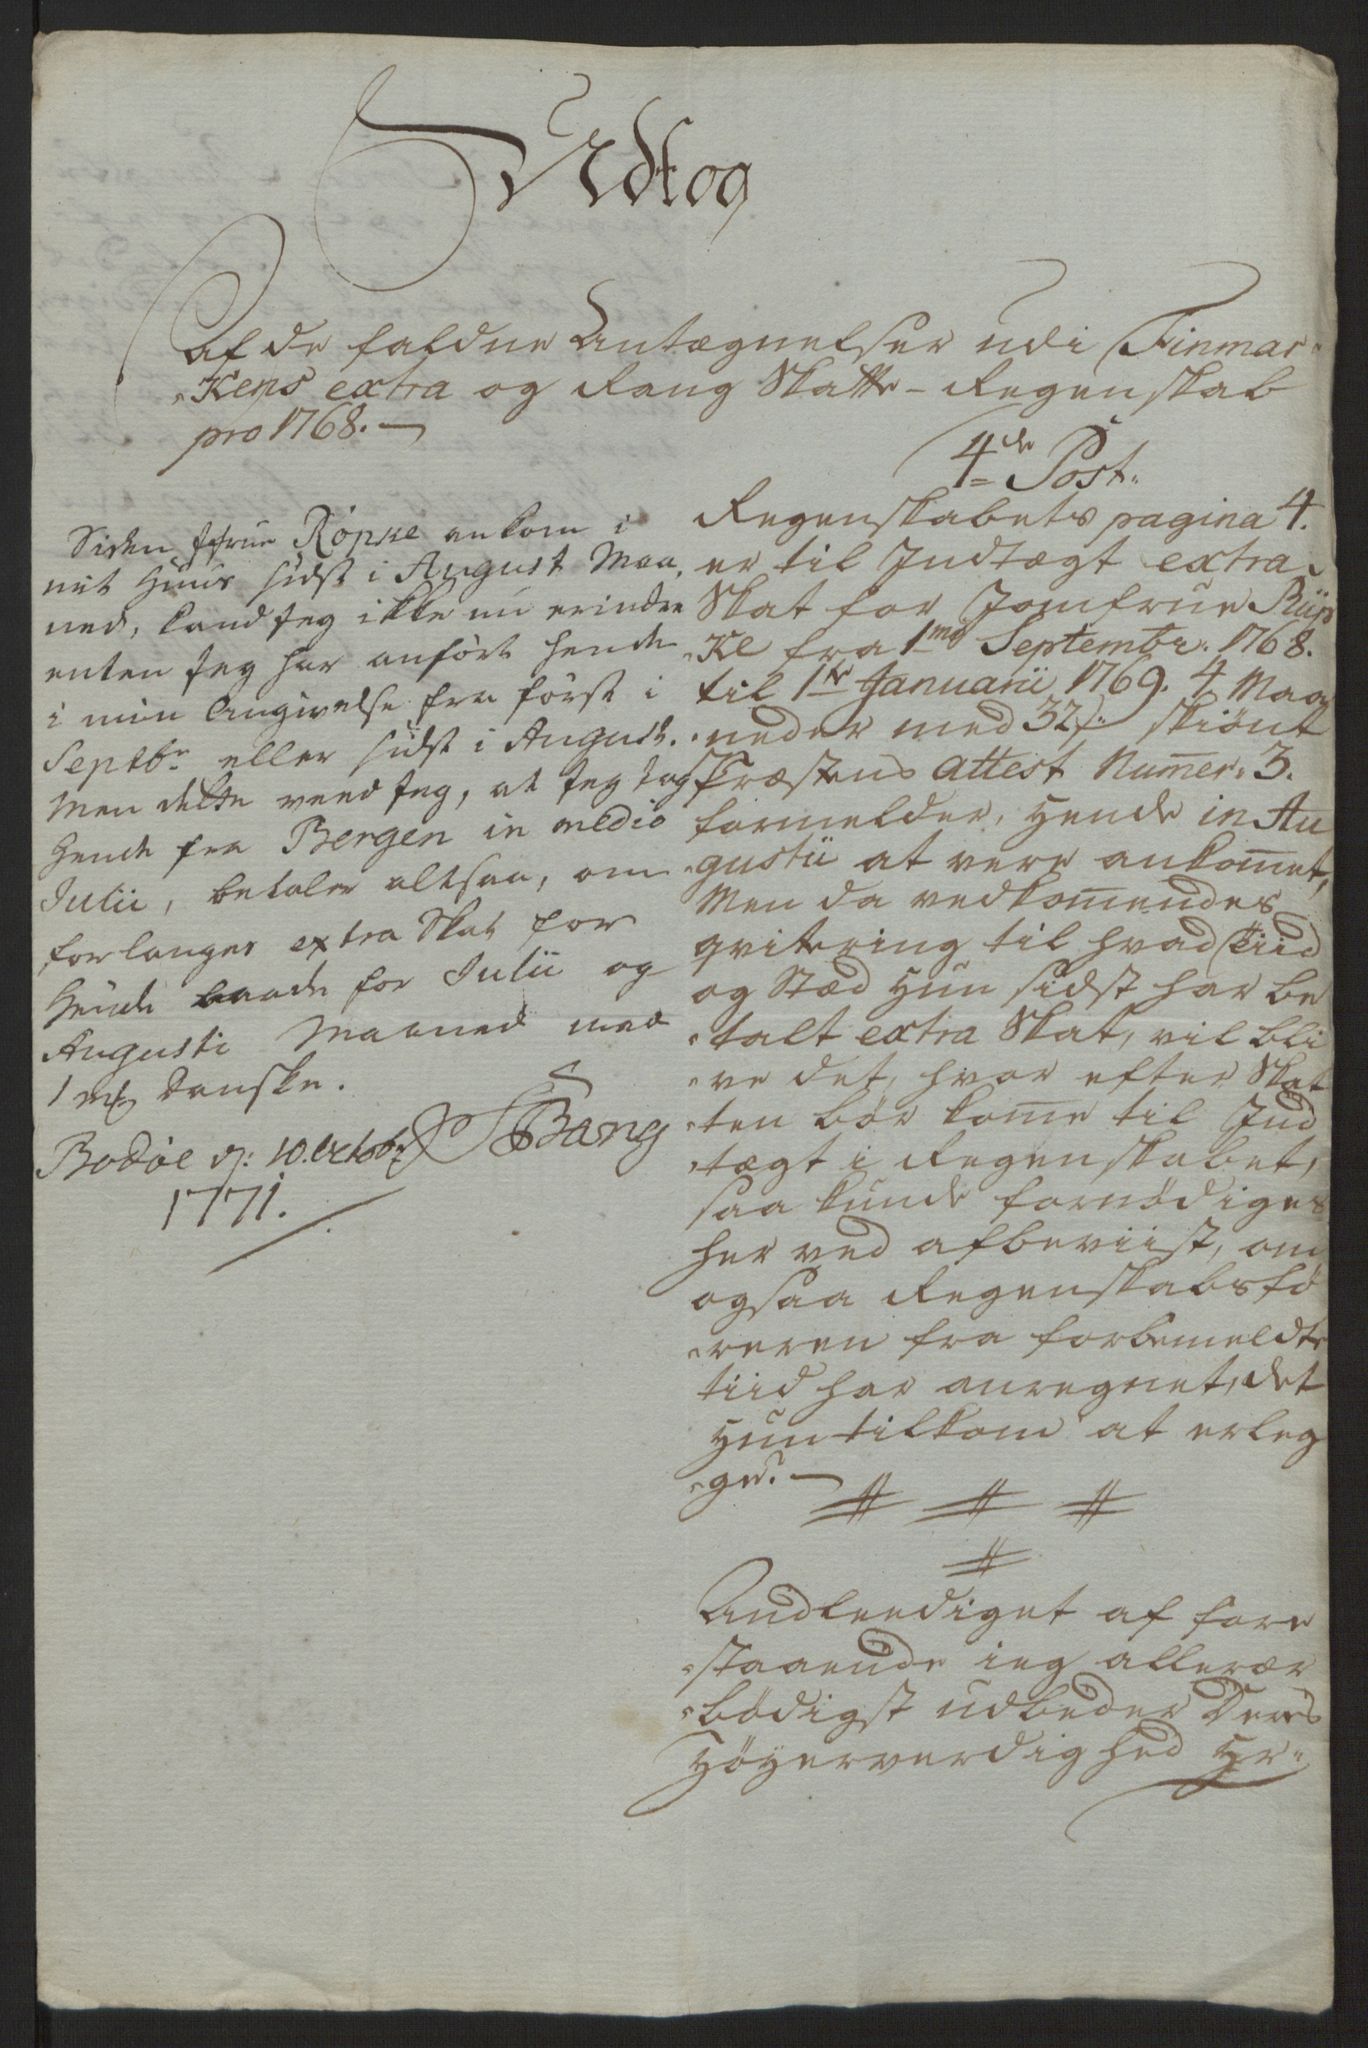 Udtog
Af de faldne Antægnelser udi Finmar-
kens extra og Rang Skatte-Regenskab
pro 1768.
4de Post.
Regenskabets pagina 4.
er til Indtægt extra
Skat for Jomfrue Rüp
ke fra 1me Septembr. 1768.
til 1te Januarii 1769. 4 Maa
neder med 32 s. skiönt
Præstens attest Numer. 3.
formelder, hende in Au
gustii at vere ankomet,
Men da vedkomendes
qvitering til hvad Tiid
og Stæd hun sidst har be
talt extra Skat, vil bli
ve det, hvor efter Skat
ten bör kome til Ind
tægt i Regenskabet,
saa kunde fornödiges
her ved afbeviist, om
ogsaa Regenskabsfö
reren fra forbemeldte
tiid har anregnet, det
hun tilkom at erleg
ge?
Andleediget af fore
staaende ieg allerær
bödigst udbeder Deres
Höyærverdighed Hr.
Siden Jfrue Röpke ankom i
mit Huus sidst i August Maa
ned, kand Jeg ikke nu erindre
enten Jeg har anfört hende
i min Angivelse fra först i
Septbr eller sidst i August.
Men dette veed Jeg, at Jeg tog
hende fra Bergen in medio
Julii, betaler altsaa, om
forlanges extra Skat for
hende baade for Julii og
Augusti Maaned med
1 mk danske.
Bodöe d: 10. Octobr
1771.
Bang